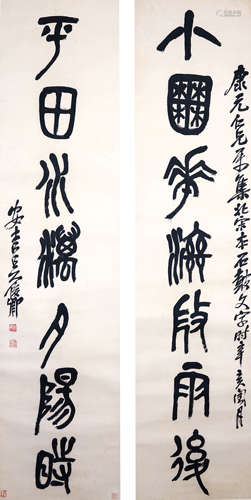 康元仁兄屬集北宋本石鼓文字時辛亥
小囿華雨後
平田水漓夕陽時
安吉吳俊卿